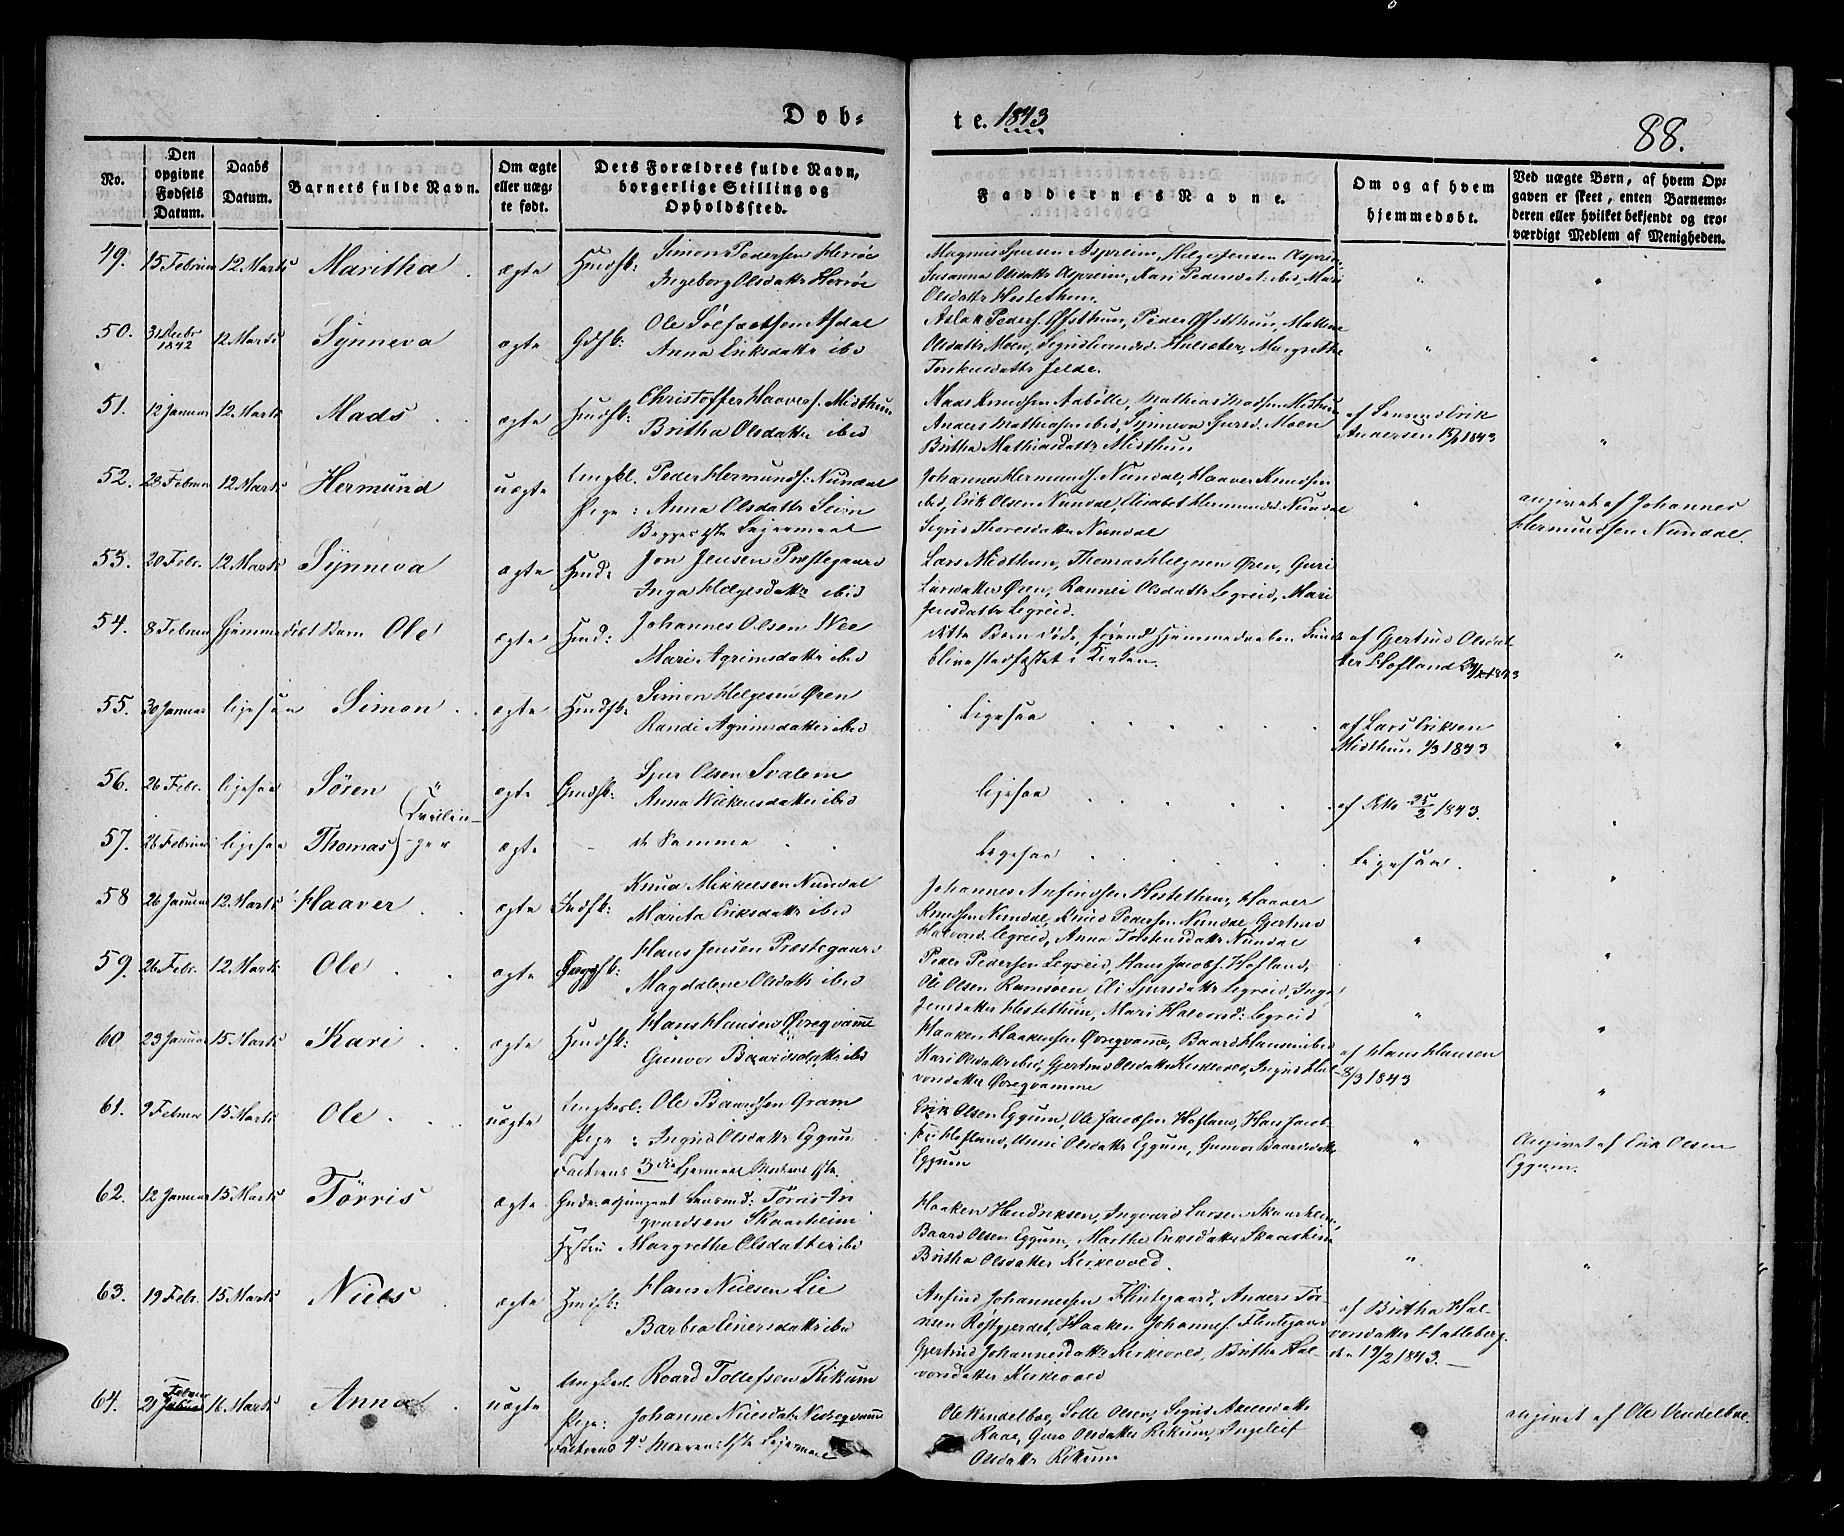 Døb-
te. 1843
88.
No.
Den opgivne Fødsels Datum.
Daabs Datum.
Barnets fulde Navn.
Om ægte eller uægte født.
Dets Forældres fulde Navn, borgerlige Stilling og Opholdssted.
Faddernes Navne.
Om og af hvem hjemmedøbt.
Ved uægte Børn, af hvem Opgaven er skeet, enten Barnemoderen eller hvilket bekjendt og troværdigt Medlem af Menigheden.
49. 15 Februar 12 Marts Maritha ægte Huusb: Simon Pedersen Herröe
Ingeborg Olsdatter Herröe
Magnus Asperim, Helge Jensen
Susanna Olsdatter Aspreim, Kari Pedersdat. ibid, Mari
Olsdatter Hestethun.
50. 31 Decbr 1842 12 Marts Synneva ægte Ole
Anna Eriksdatter ibid
Aslak Peders. Öfsthun, Peder Öfsthun, Malene
Olsdatter Moen, Margrethe
51. 12 Januar 12 Marts Mads ægte Christoffer Haavers. Midthun
Britha Olsdatter ibid
Knudsen Aaböle, Mathias Madsen Midthun
Anders Mathiasen ibid, Synneva Moen
Britha Mathiasdatter Midthun
af Lensmd Erik
Andersen 1843
52. 23 Februar 12 Marts Hermund uægte Ungkl. Peder Hermunds: Nundal
Pige: Anna Olsdatter
Begges 1ste Leiermaal
Johannes Hermunds. Nundal, Haaver Knudsen
ibid, Erik Olsen Nundal, Elisabet Hermundsd. Nundal
Sigrid Thoresdatter Nundal
angivet af Johannes
Hermundsen Nundal
53. 20 Febr. 12 Marts Synneva ægte Jon Jensen Præstegaard
Inga Helgesdatter ibid
Lars Midthun, Thomas Helgesen Øren, Guri
Larsdatter Øren, Rannei Olsdatter Legreid, Mari
Jensdatter Legreid.
54. 8 Februar Hjemmedøbt Barn Ole ægte Johannes Olsen Wee
Mari Agrimsdatter ibid
dette Barn døde, førend Hjemmedaaben kunde
blive stadfæstet i Kirken.
af Gjertrud Olsdat-
ter Hofland 1843
55. 30 Januar ligesaa Simon ægte Simon Helgesen Øren
Randi Agrimsdatter ibid
Ligesaa
af Lars Eriksen
Midthun 1/3 1843
56. 26 Febr. ligesaa Sören ægte Olsen Svalem
Anna ibid
ligesaa
af 25/2 1843.
57. 26 Februar ligesaa Thomas Tvillin-
ger ægte de Samme
Ligesaa
Ligesaa.
58 26 Januar 12 Marts Haaver ægte Knud Mikkelsen Nundal
Marita Eriksdatter ibid
Johannes Anfindsen Hestethun, Haaver
Knudsen Nundal, Knud Pedersen Nundal, Gjertrud
Legreid, Anna Torstensdatter Nundal
59. 26 Febr. 12 Marts Ole ægte Hans Jensen Præstegaard
Magdalene Olsdatter ibid
Peder Pedersen Legreid, Hans Jacobs. Hofland,
Ole Olsen Ramsöen, Eli Sjursdatter Legreid, Inga
Jensdatter Hestethun, Mari Legreid
60 23 Januar 15 Marts Kari ægte Huusb: Hans Hansen Øvreqvamme
Gunvor Baardsdatter ibid
Haaken Haakensen Øvreqvamme, Baard Hansen ibid
Kari Olsdatter ibid, Gjertrud Olsdatter Kirkevold, Ingrid Hal-
vorsdatter Øvreqvamme
af Hans Hansen
8/3 1843
61. 9 Februar 15 Marts Ole uægte Ungkarl: Ole Baardsen Gram
Pige: Ingrid Olsdatter Eggum
Faderens 3die Leiermaal Moderens 1ste.
Erik Olsen Eggum, Ole Jacobsen Hofland, Hans Jacob-
sen Hofland, Unni Olsdatter Eggum, Gunvor Baardsdatter
Eggum
Angivet af Erik Olsen
Eggum.
62. 12 Januar 15 Marts Törris ægte adjungeret Lensmd: Törris In-
gvardsen Skaarheim
Hustru Margrethe Olsdatter ibid
Haaken Hendriksen, Ingvard Larsen Skaarheim,
Baard Olsen Eggum, Marthe Eriksdatter Skaarheim
Britha Olsdatter Kirkevold.
63. 19 Febr. 15 Marts Niels ægte Huusb: Hans Nielsen Lie
Barbra Einersdatter ibid
Anfind Johannessen Flintegaard, Anders Tör-
resen Röstgjerdet, Haaken Johannes. Flintegaard
Gjertrud Johannesdatter Kirkevold, Britha Hal-
vorsdatter Kirkevold
af Britha Hal-
vorsdatter Hatleberg
d. 19/2 1843.
64. 21 Februar 16 Marts Anna uægte Ungkarl Roard Tollefsen Rikum
Pige: Johanne Nielsdatter Nedreqvamme
Faderens 4de Moderens 1ste Leiermaal
Ole Wendelboe, Solle Olsen, Sigrid Axelsdatter
Raae, Guro Olsdatter Rikum, Ingeleif
Olsdatter Rikum
angivet af Ole Vendelboe.